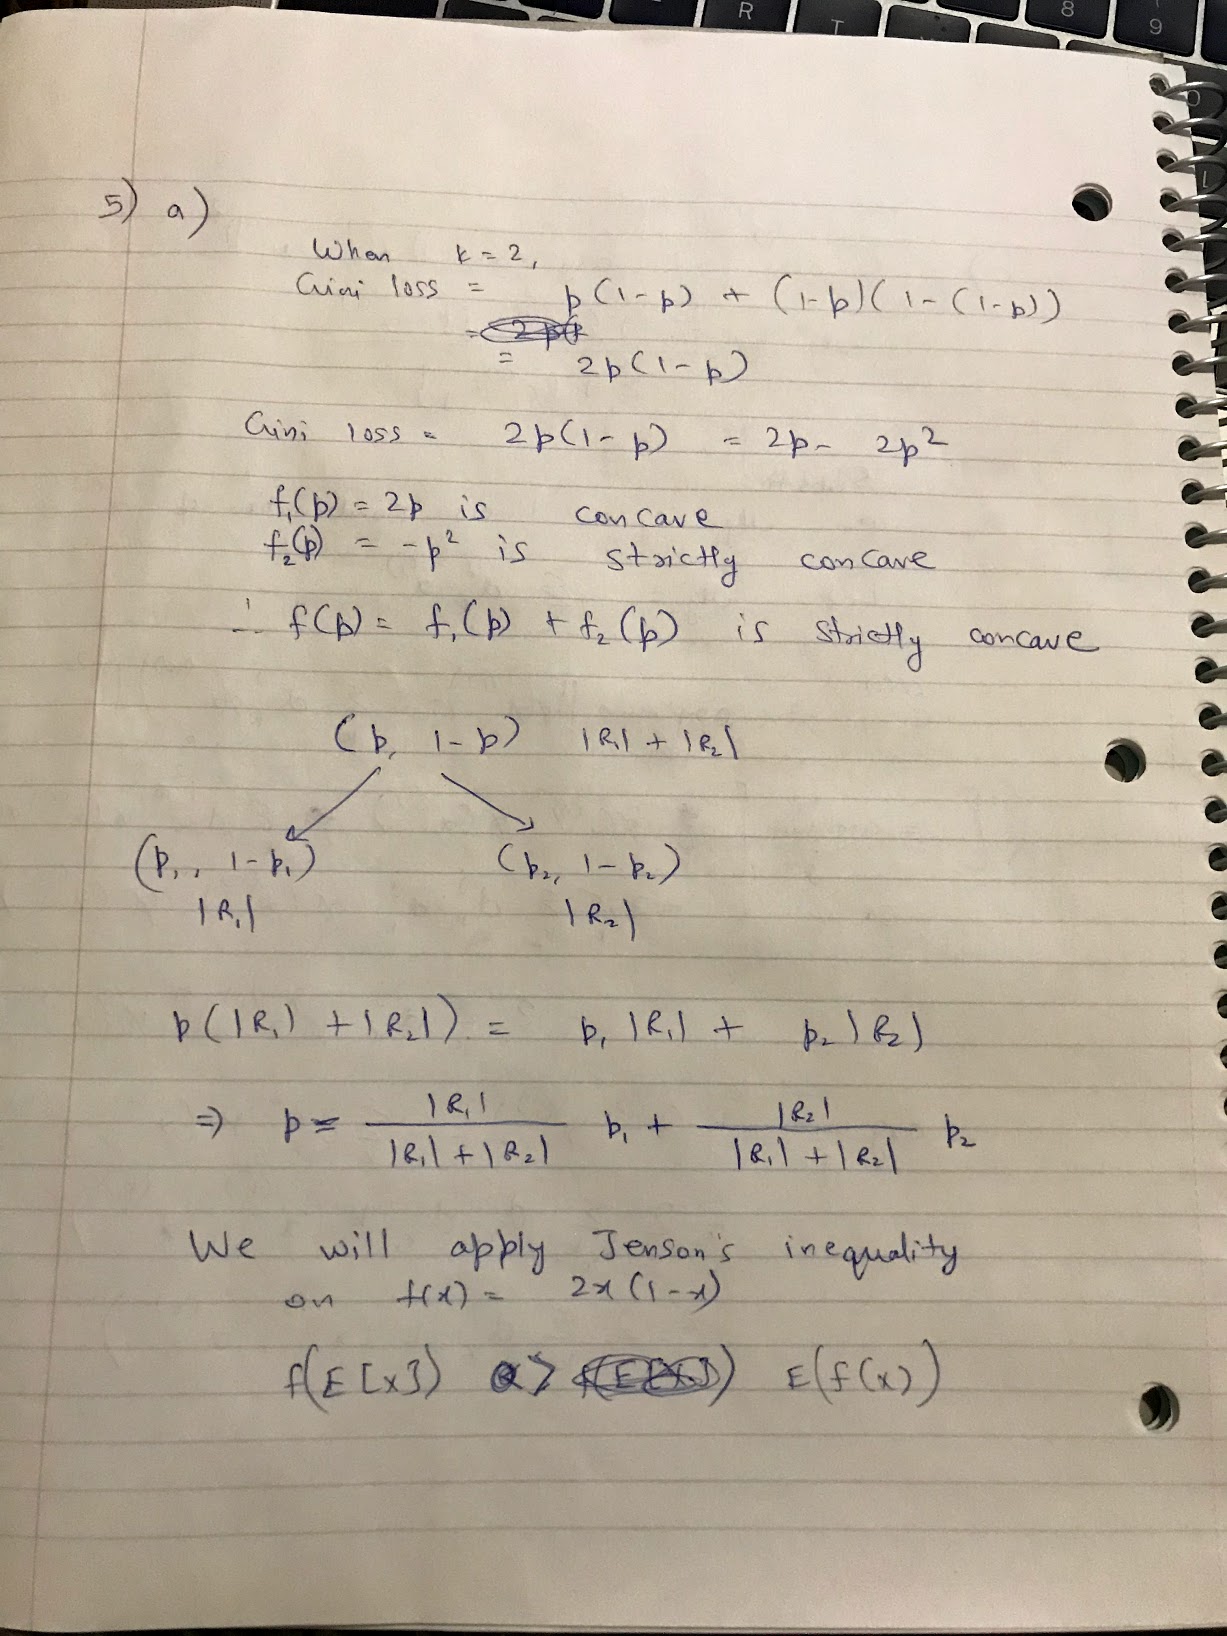 R T 8 9
O
L
5) a)
When k = 2,
Gini loss = p(1-p) + (1-p)(1-(1-p))
= 2p(1-p)
Gini loss = 2p(1-p) = 2p - 2p²
f₁(p) = 2p is concave
f₂(p) = -p² is strictly concave
∴ f(p) = f₁(p) + f₂(p) is strictly concave
(p, 1-p) |R₁| + |R₂|
(p₁, 1-p₁) (p₂, 1-p₂)
|R₁| |R₂|
p(|R₁| + |R₂|) = p₁|R₁| + p₂|R₂|
⇒ p = |R₁| / (|R₁| + |R₂|) p₁ + |R₂| / (|R₁| + |R₂|) p₂
We will apply Jenson's inequality
on f(x) = 2x(1-x)
f(E[x]) > E(f(x))